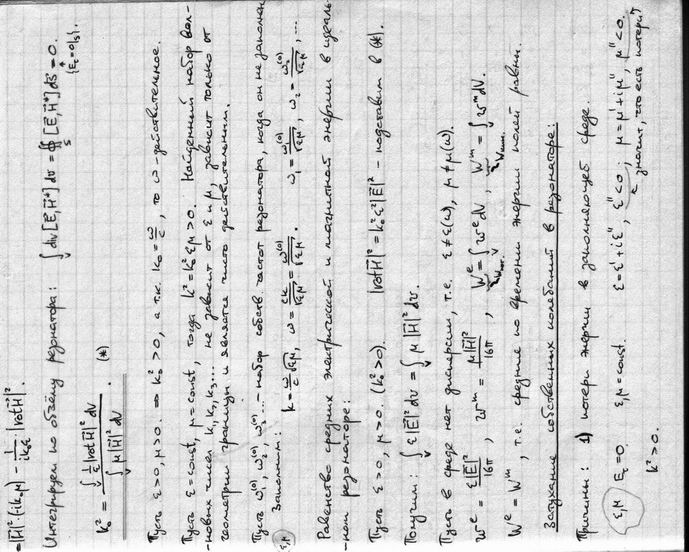 = |H⃗|²·(ik₀μ) − 1/(ik₀ε) |rotH⃗|².
Интегрируем по объёму резонатора: ∫_V div[E⃗,H⃗*]dv = ∯_S [E⃗,H⃗*]ds⃗ = 0.
{E_τ=0|_S}.
k₀² = ∫_V (1/ε)|rotH⃗|² dv / ∫_V μ|H⃗|² dv . (*)
Пусть ε>0, μ>0 ⇒ k₀²>0, а т.к. k₀=ω/c, то ω-действительное.
Пусть ε=const, μ=const, тогда k²=k₀²εμ>0. Найденный набор вол-
-новых чисел k₁,k₂,k₃... не зависит от ε и μ, зависит только от
геометрии границы и является чисто действительным.
Пусть ω₁⁽⁰⁾, ω₂⁽⁰⁾, ω₃⁽⁰⁾... - набор собств. частот резонатора, когда он не заполнен
Заполним:
ε,μ k=ω/c √εμ, ω=ck/√εμ = ω⁽⁰⁾/√εμ. ω₁=ω₁⁽⁰⁾/√εμ, ω₂=ω₂⁽⁰⁾/√εμ, ...
Равенство средних электрической и магнитной энергии в идеаль-
-ном резонаторе:
Пусть ε>0, μ>0. (k₀²>0). |rotH⃗|²=k₀²ε²|E⃗|² - подставим в (*).
Получим: ∫_V ε|E⃗|²dv = ∫_V μ|H⃗|²dv.
Пусть в среде нет дисперсии, т.е. ε≠ε(ω), μ≠μ(ω).
w^e = ε|E⃗|²/16π , w^m = μ|H⃗|²/16π , W^e = ∫_V w^e dV , W^m = ∫_V w^m dV.
W^e = W^m, т.е. средние по времени энергии полей равны.
Затухание собственных колебаний в резонаторе:
Причины: 1) потери энергии в заполняющей среде.
ε,μ E_τ=0. ε,μ=const. ε=ε'+iε'', ε''<0; μ=μ'+iμ'', μ''<0.
k²>0. значит, что есть потери